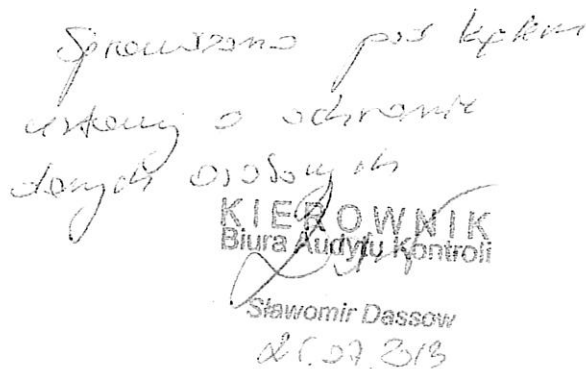 Sprawdzono pod kątem
ustawy o ochronie
danych osobowych
KIEROWNIK
Biura Audytu Kontroli
Sławomir Dassow